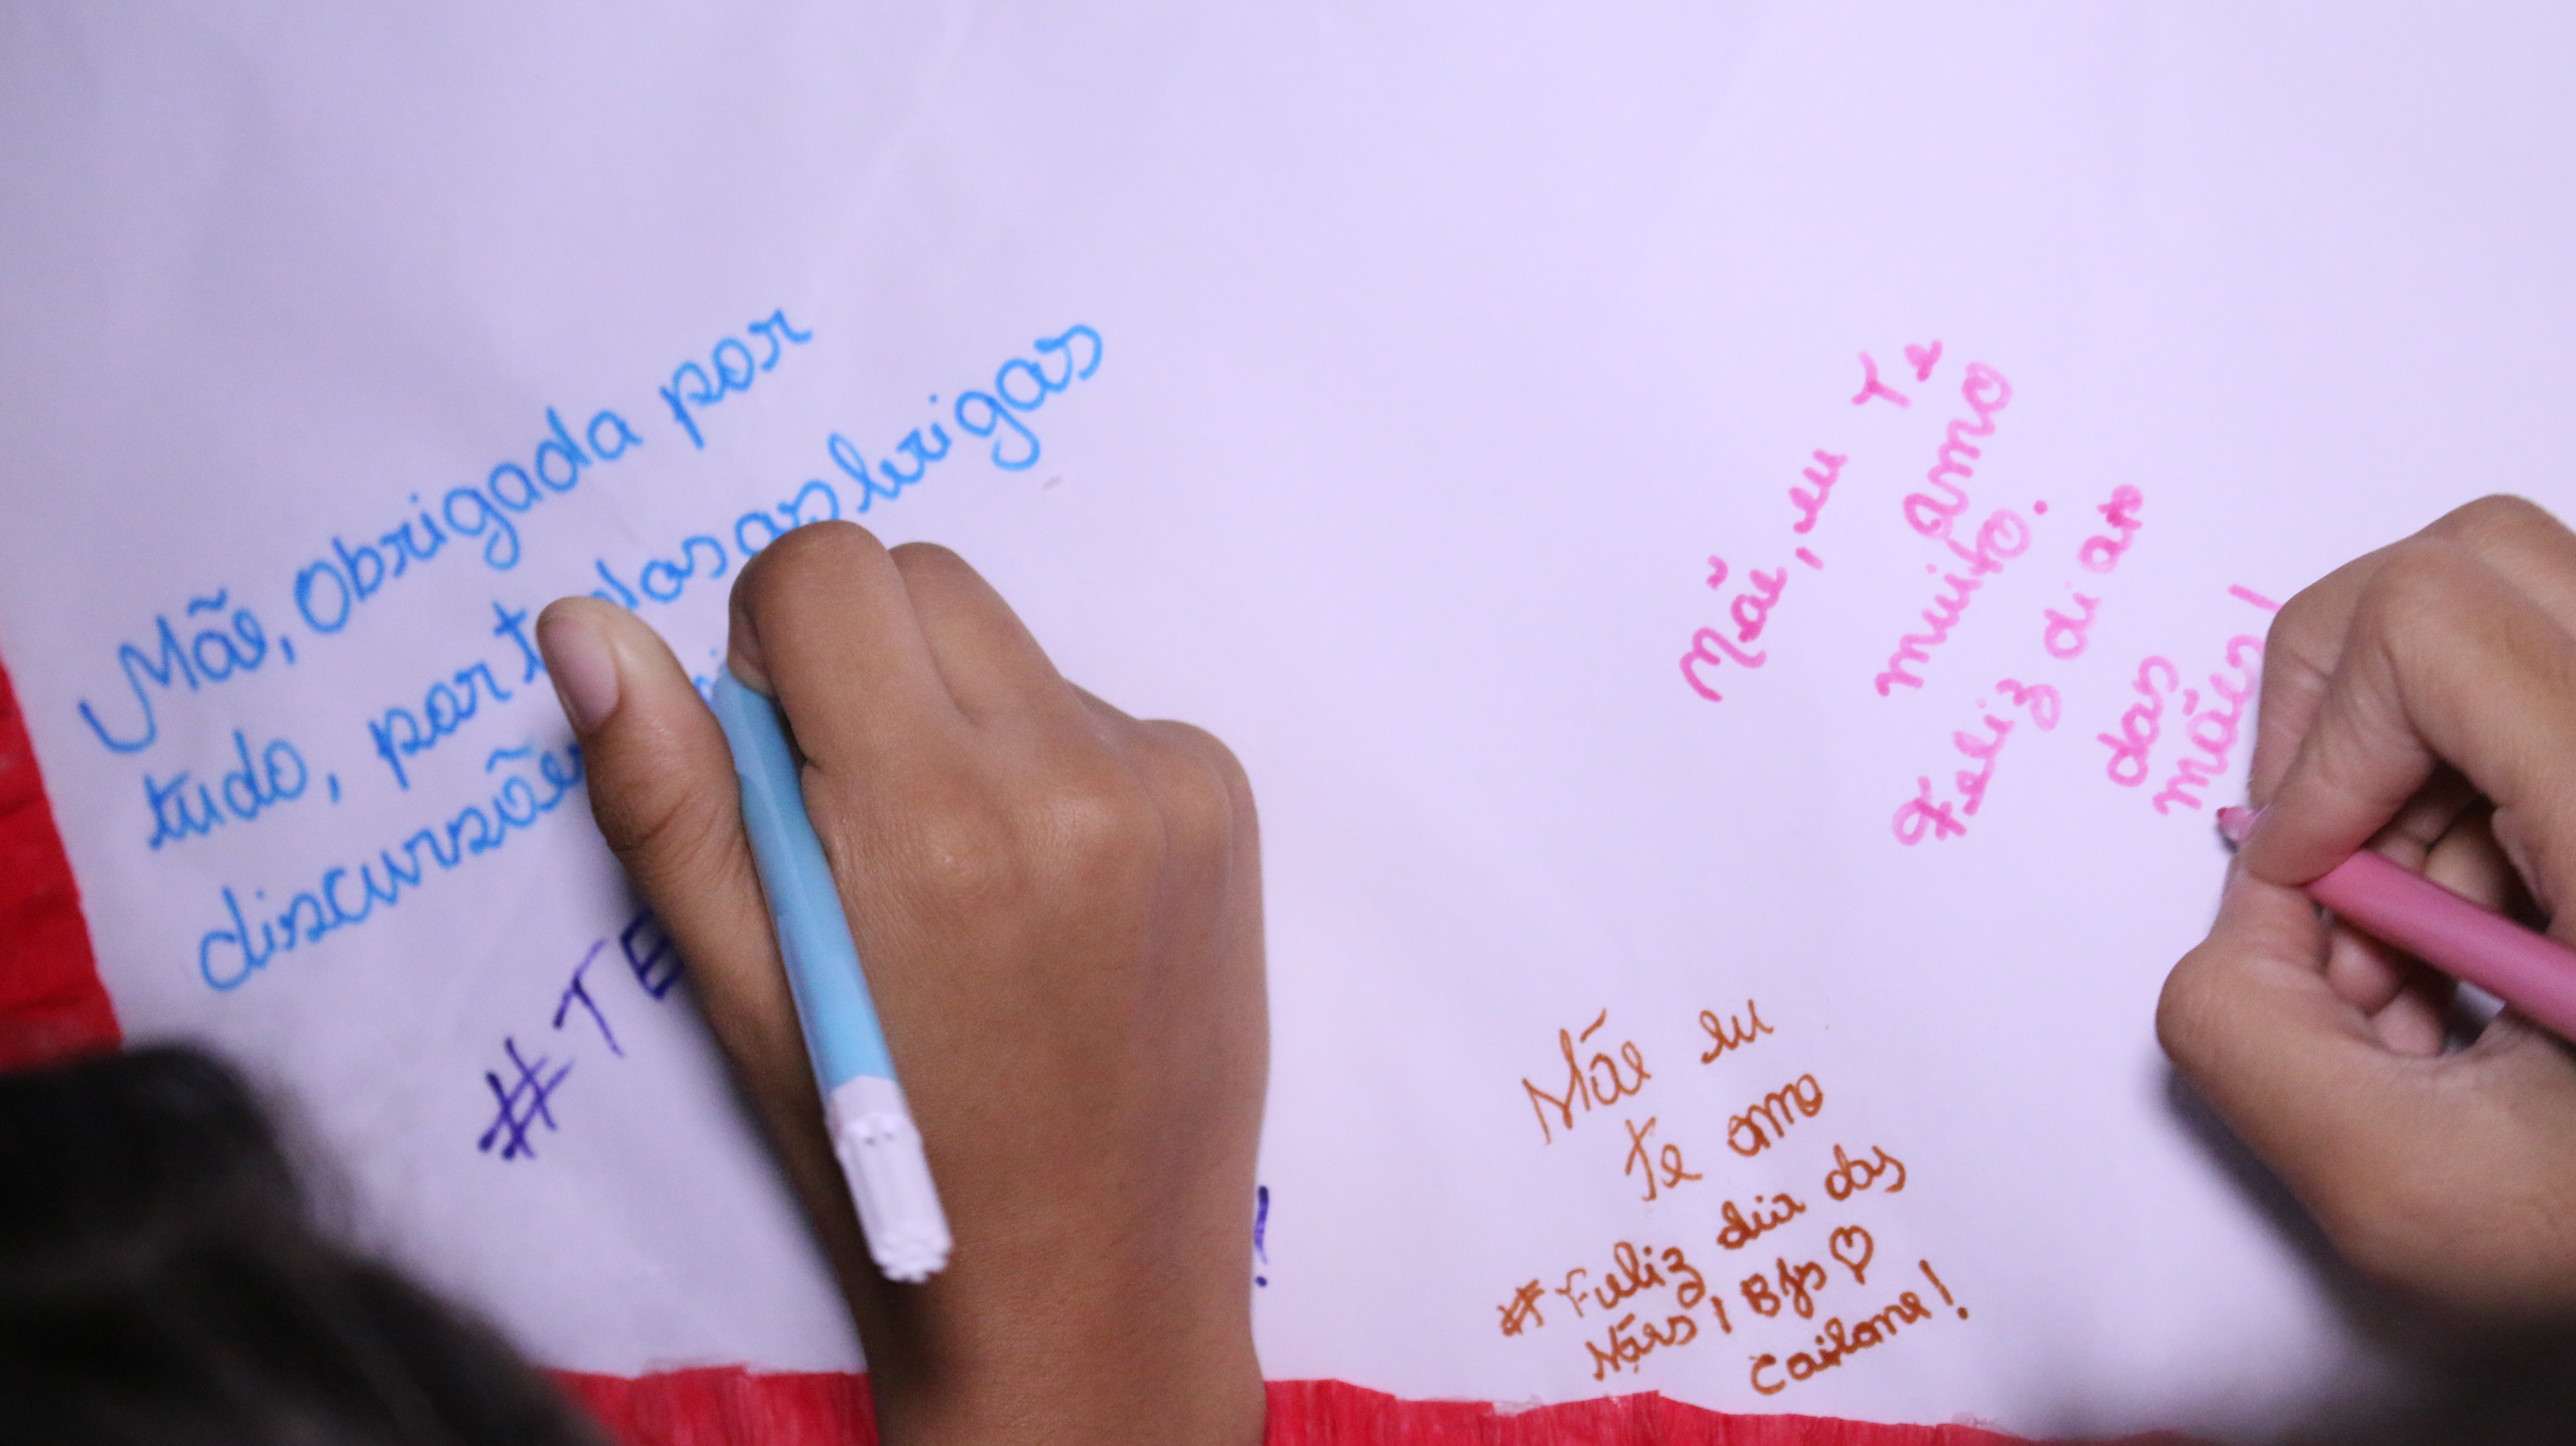 Mãe, Obrigada por
tudo, por todas as brigas
discursões
#TE
!
Mãe, eu Te
amo
muito.
Feliz dia
das
mães!
Mãe eu
te amo
#Feliz dia das
Mães! Bjs ♡